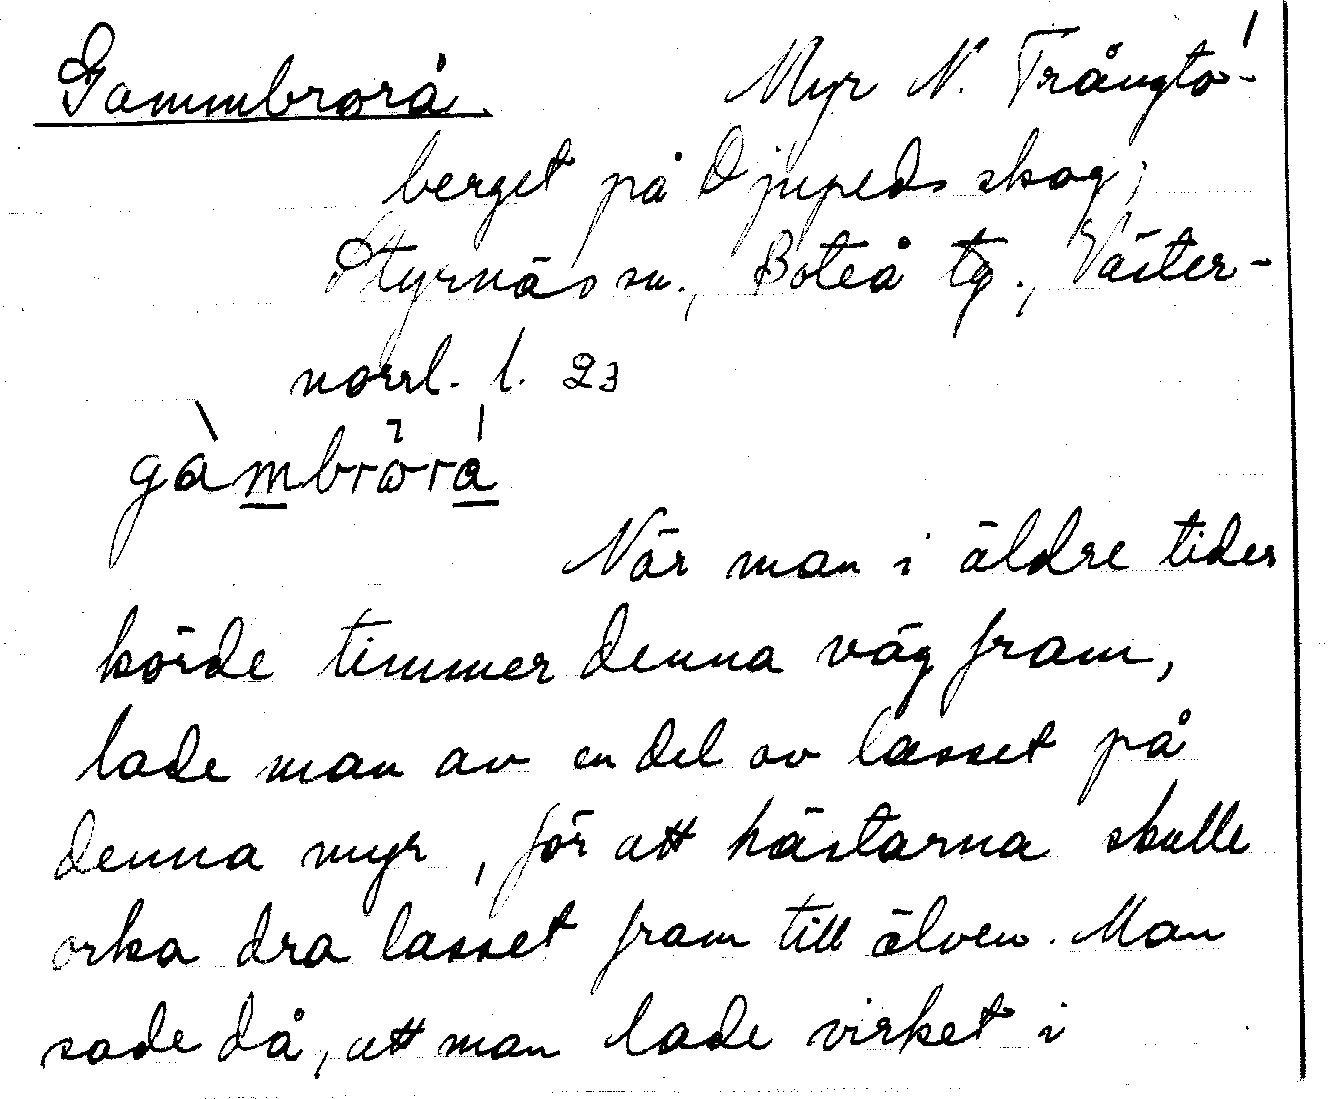 Gammbrorå. Myr N. Trångtó-
berget på Djupeds skog,
Styrnäs sn., Boteå tg., Väster-
norrl. l. 23
gàmbrörá
När man i äldre tider
körde timmer denna väg fram,
lade man av en del av lasset på
denna myr, för att hästarna skulle
orka dra lasset fram till älven. Man
sade då, att man lade virket i